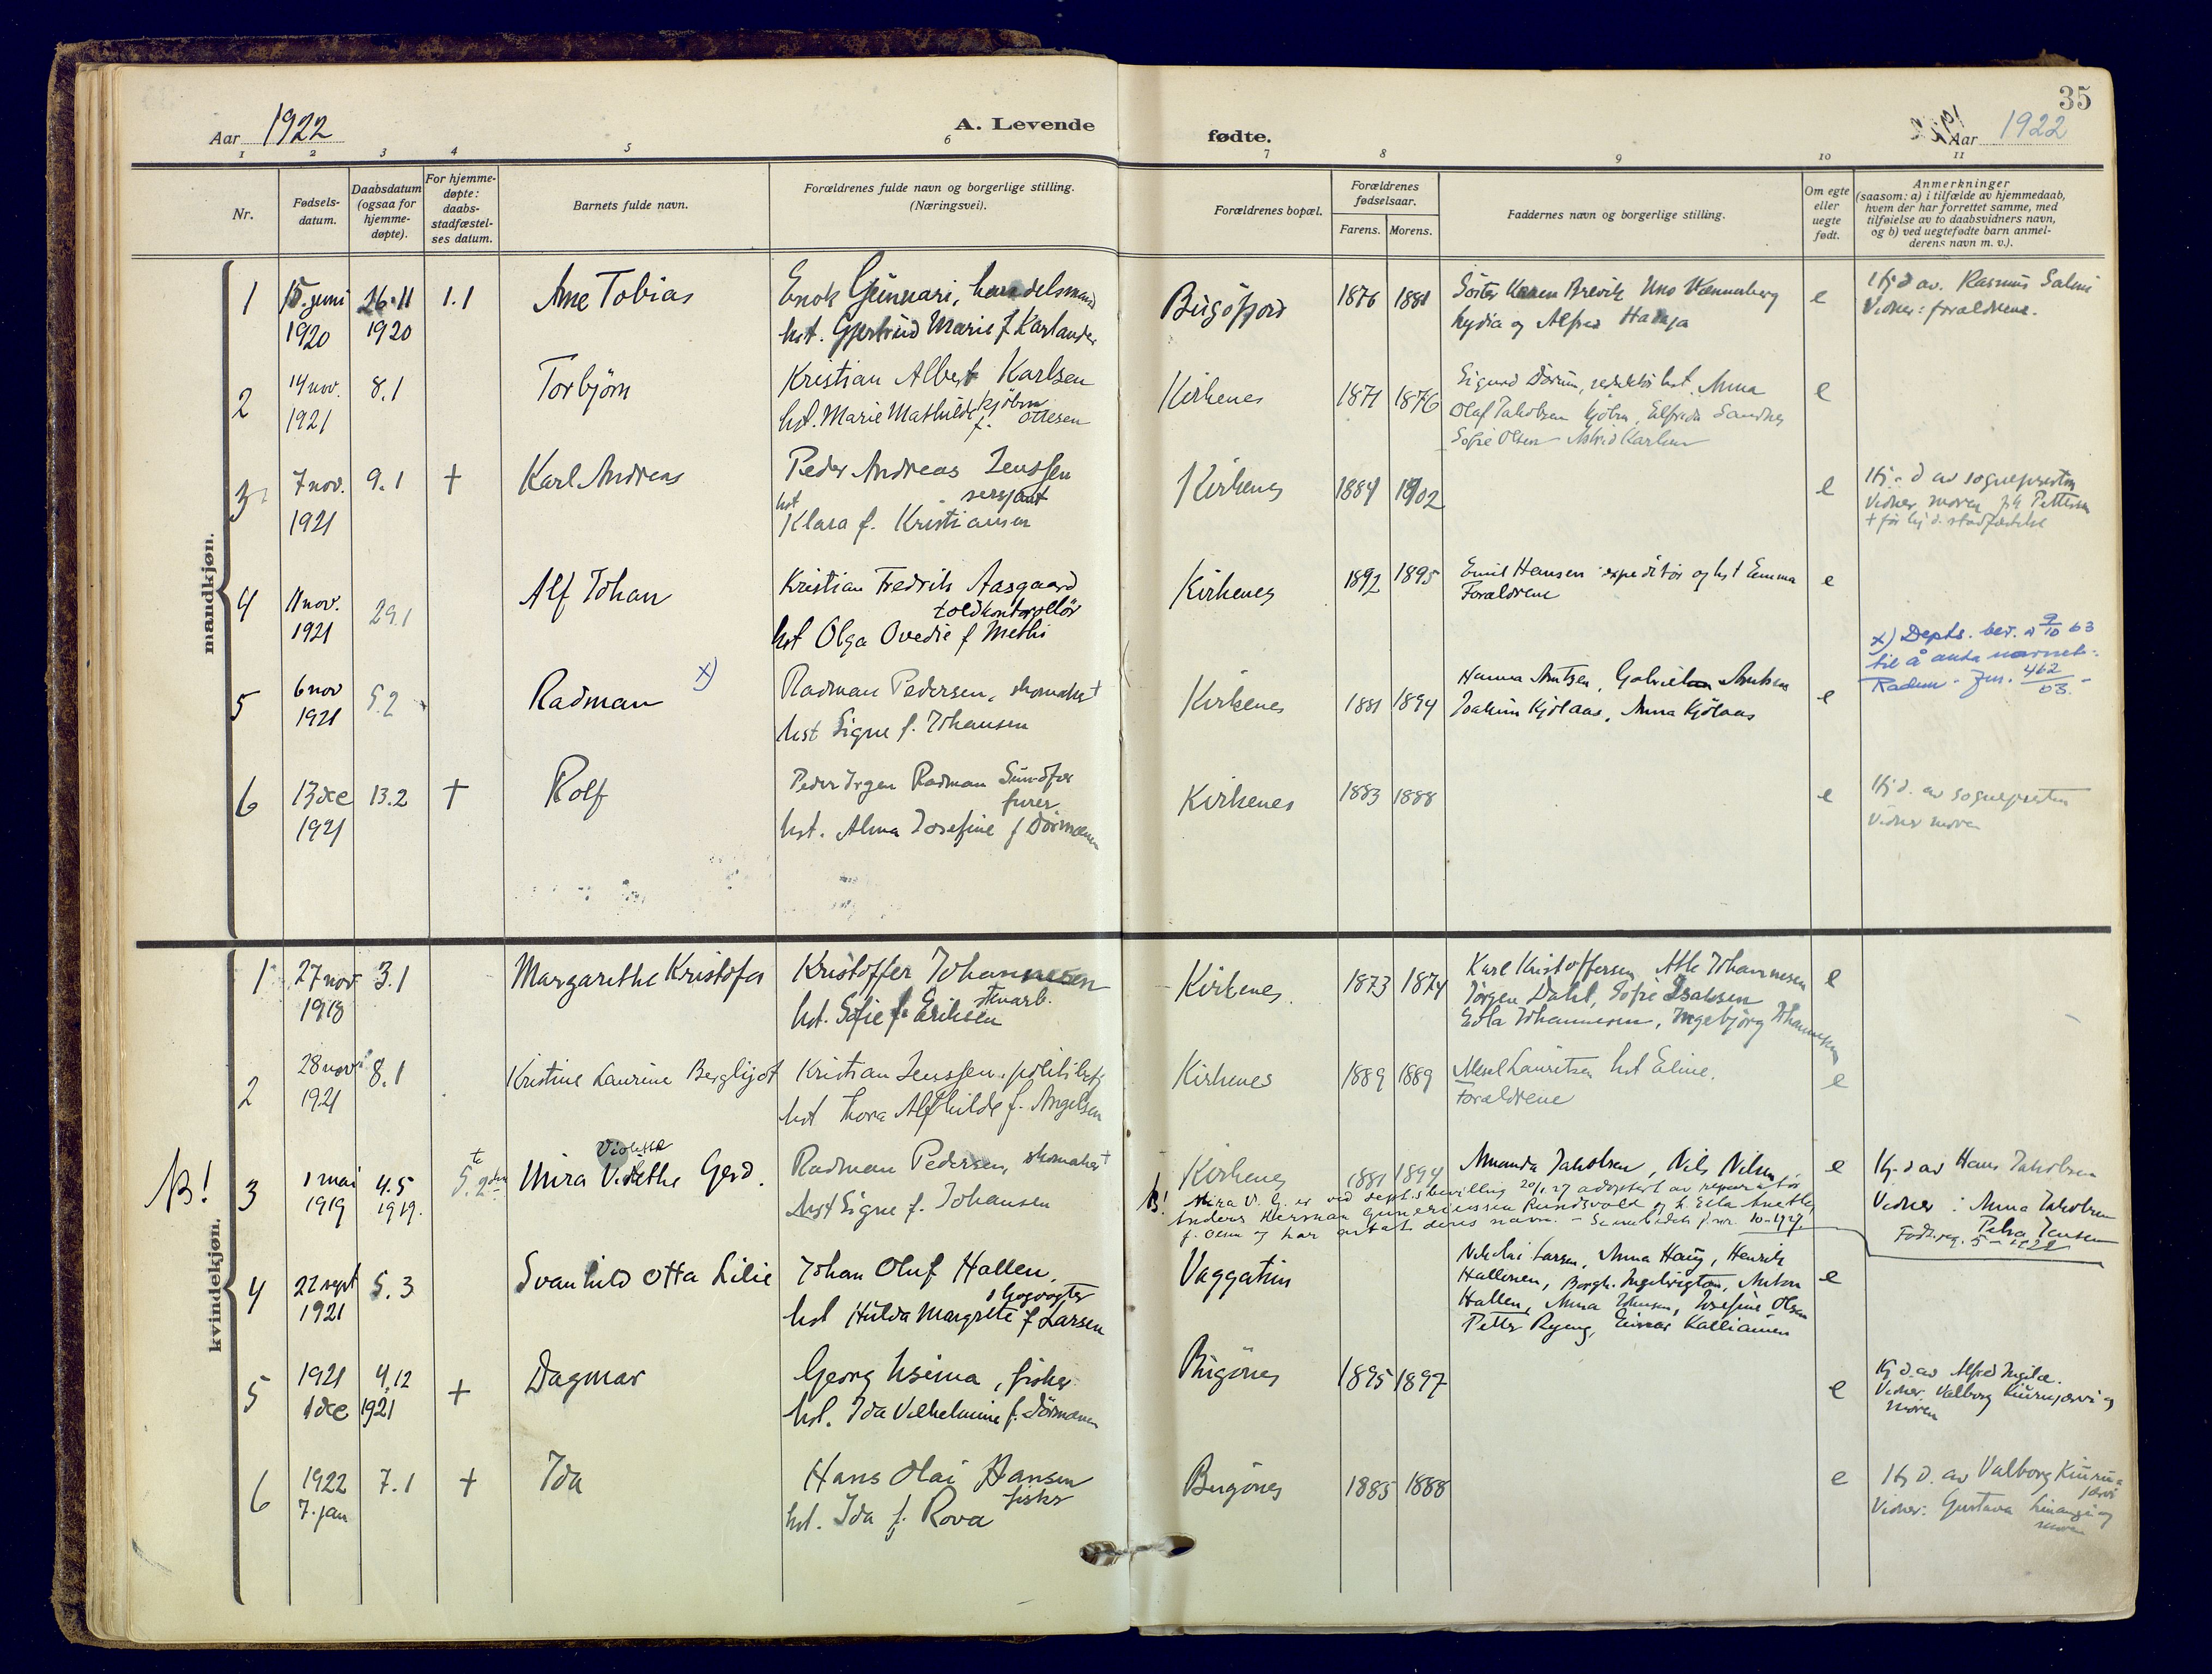 Aar 1922
A. Levende
fødte.
35
Aar 1922
1 2 3 4 5 6 7 8 9 10 11
Nr.
Fødsels-
datum.
Daabsdatum
(ogsaa for
hjemme-
døpte).
For hjemme-
døpte:
daabs-
stadfæstel-
ses datum.
Barnets fulde navn.
Forældrenes fulde navn og borgerlige stilling.
(Næringsvei).
Forældrenes bopæl.
Forældrenes
fødselsaar.
Farens. Morens.
Faddernes navn og borgerlige stilling.
Om egte
eller
uegte
født.
Anmerkninger
(saasom: a) i tilfælde av hjemmedaab,
hvem der har forrettet samme, med
tilføielse av to daabsvidners navn,
og b) ved uegtefødte barn anmel-
derens navn m. v.).
mandkjøn.
1 15. juni 26.11 1.1 Arne Tobias Enok Gunnari, handelsmand Bugöfjord 1876 1881 Söster Karen Brevik Uno Wannenberg e Hj.d av. Rasmus Salmi
1920 1920 hst. Gjertrud Marie f. Karlander Lydia og Alfred Vidner: forældrene.
2 14 nov. 8.1 Torbjörn Kristian Albert Karlsen Kirkenes 1871 1876 Sigurd redaktör hst. Anna e
1921 hst. Marie Mathilde f. Ottesen Olaf Jakobsen kjöbm, Elfrida Sandnes
kjöbm Sofie Olsen Astrid Karlsen
3 7 nov. 9.1 + Karl Andreas Peder Andreas Jenssen Kirkenes 1884 1902 e Hj. d av sognepresten
sersjant Vidner moren Pettersen
1921 hst Klara f. Kristiansen + før hj. d. stadfæstelse
4 11 nov. 29.1 Alf Johan Kristian Fredrik Aasgaard Kirkenes 1892 1895 Emil Hansen expeditör og hst Emma e
1921 toldkontrollör Forældrene
hst Olga Ovedie f Methi
x) Depts. bev. 9/10 63
til å anta navnet:
Radem Jnr. 462/63.
5 6 nov 5.2 Radman x) Radman Pedersen, skomaker Kirkenes 1881 1894 Hanna Arntzen, Gabriel Arntsen e
1921 hst Signe f. Johansen Joakim Kjölaas, Anna Kjölaas
6 13 dec 13.2 + Rolf Peder Radman Sundfær Kirkenes 1883 1888 e Hj d. av sognepresten
1921 furer. Vidner moren
hst. Alma Josefine f Dörmænen
kvindekjøn.
1 27 nov 3.1 Margarethe Kristofa Kristoffer Johannesen Kirkenes. 1873 1874 Karl Kristoffersen, Atle Johannesen e
1918 hst. Sofie f. Eriksen Jörgen Dahl, Sofie Isaksen
Edla Johannesen, Ingebjörg Johannesen
2 28 nov 8.1 Kristine Laurine Bergljot Kristian Jenssen. politibetj Kirkenes 1889 1889 Aksel Lauritsen hst Eline. e
1921 hst Thora Alfhilde f. Angelsen Forældrene
NB! 3 1 mai 4.5 5.2 Mira Gerd. Radman Pedersen, skomaker Kirkenes 1881 1894 Amanda Jakobsen, Nils Nilsen. e Hj. d av Hans Jakobsen
1919 1919. Violetta hst Signe f. Johansen Vidner: Anna Jakobsen
Petra Jensen
NB! Mira V. G. er ved depts bevilling 20/1 27 adoptert av reparatör
Anders Herman Rundsvold og h. Ella Anette,
f. Olsen og har antat deres navn. 10-1927.
4 22 sept 5.3 Svanhild Otta Lilie Johan Oluf Hallen, Vaggatim Nikolai Larsen, Anna Haug, Henrik e
1921 skogvogter Hallonen, Borgh. Ingebrigtsen, Anton
hst Hulda Margrete f Larsen Hallen, Anna Johansen, Josefine Olsen
Petter Ryeng, Einar Kalliainen
5 1921 4.12 + Dagmar Georg Useima, fisker Bugönes 1895 1897 e Hj d. av Alfred
1 dec 1921 hst. Ida Vilhelmine f. Dörmænen Vidner. Valborg Kiurujærvi og
moren
6 1922 7.1 + Ida Hans Olai Hansen Bugönes 1885 1888 e Hj d. av Valborg Kiuru-
7. jan fisker jærvi
hst. Ida f. Rova Vidner: Gustava og
moren